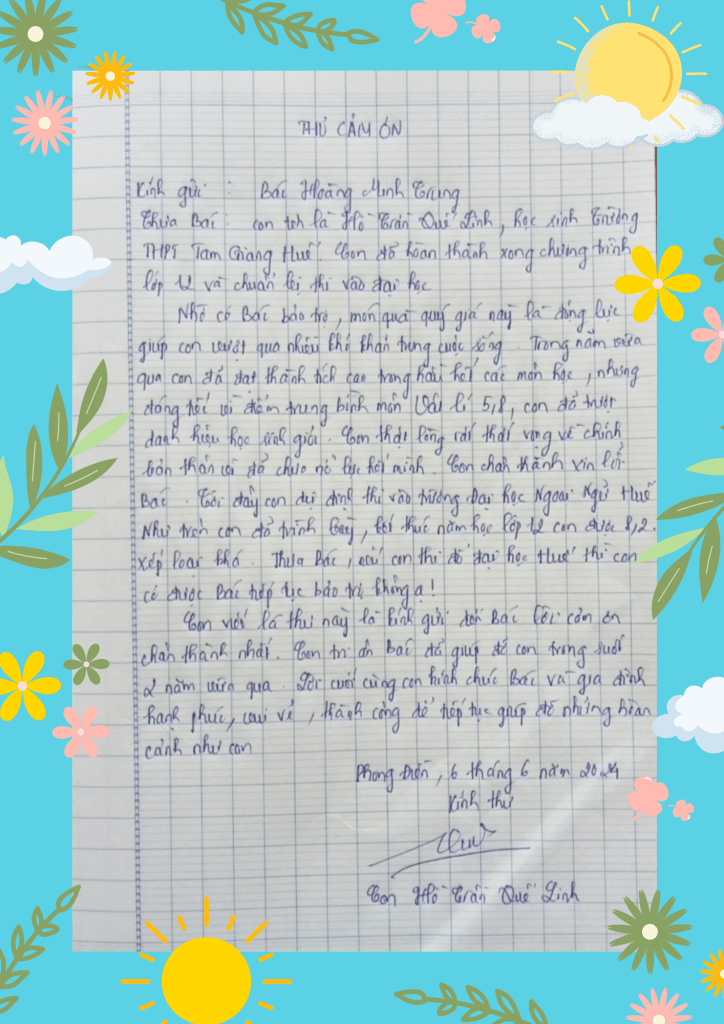 THƯ CẢM ƠN
Kính gửi : Bác Hoàng Minh Trung
Thưa Bác : con tên là Hồ Trần Quế Linh, học sinh Trường
THPT Tam Giang Huế. Con đã hoàn thành xong chương trình
lớp 12 và chuẩn bị thi vào đại học
Nhờ có Bác bảo trợ, món quà quý giá này là động lực
giúp con vượt qua nhiều khó khăn trong cuộc sống. Trong năm vừa
qua con đã đạt thành tích cao trong hầu hết các môn học, nhưng
đáng tiếc vì điểm trung bình môn Vật lí 5,8, con đã trượt
danh hiệu học sinh giỏi. Con thật lòng rất thất vọng về chính
bản thân vì đã chưa nỗ lực hết mình. Con chân thành xin lỗi
Bác. Tới đây con dự định thi vào trường Đại học Ngoại Ngữ Huế
Như trên con đã trình bày, kết thúc năm học lớp 12 con được 8,2.
xếp loại khá. Thưa Bác, nếu con thi đỗ đại học Huế thì con
có được Bác tiếp tục bảo trợ không ạ!
Con viết lá thư này là kính gửi đến Bác lời cảm ơn
chân thành nhất. Con tri ân Bác đã giúp đỡ con trong suốt
2 năm vừa qua. Lời cuối cùng con kính chúc Bác và gia đình
hạnh phúc, vui vẻ, thành công để tiếp tục giúp đỡ những hoàn
cảnh như con
Phong Điền, 6 tháng 6 năm 2024
Kính thư
Con Hồ Trần Quế Linh